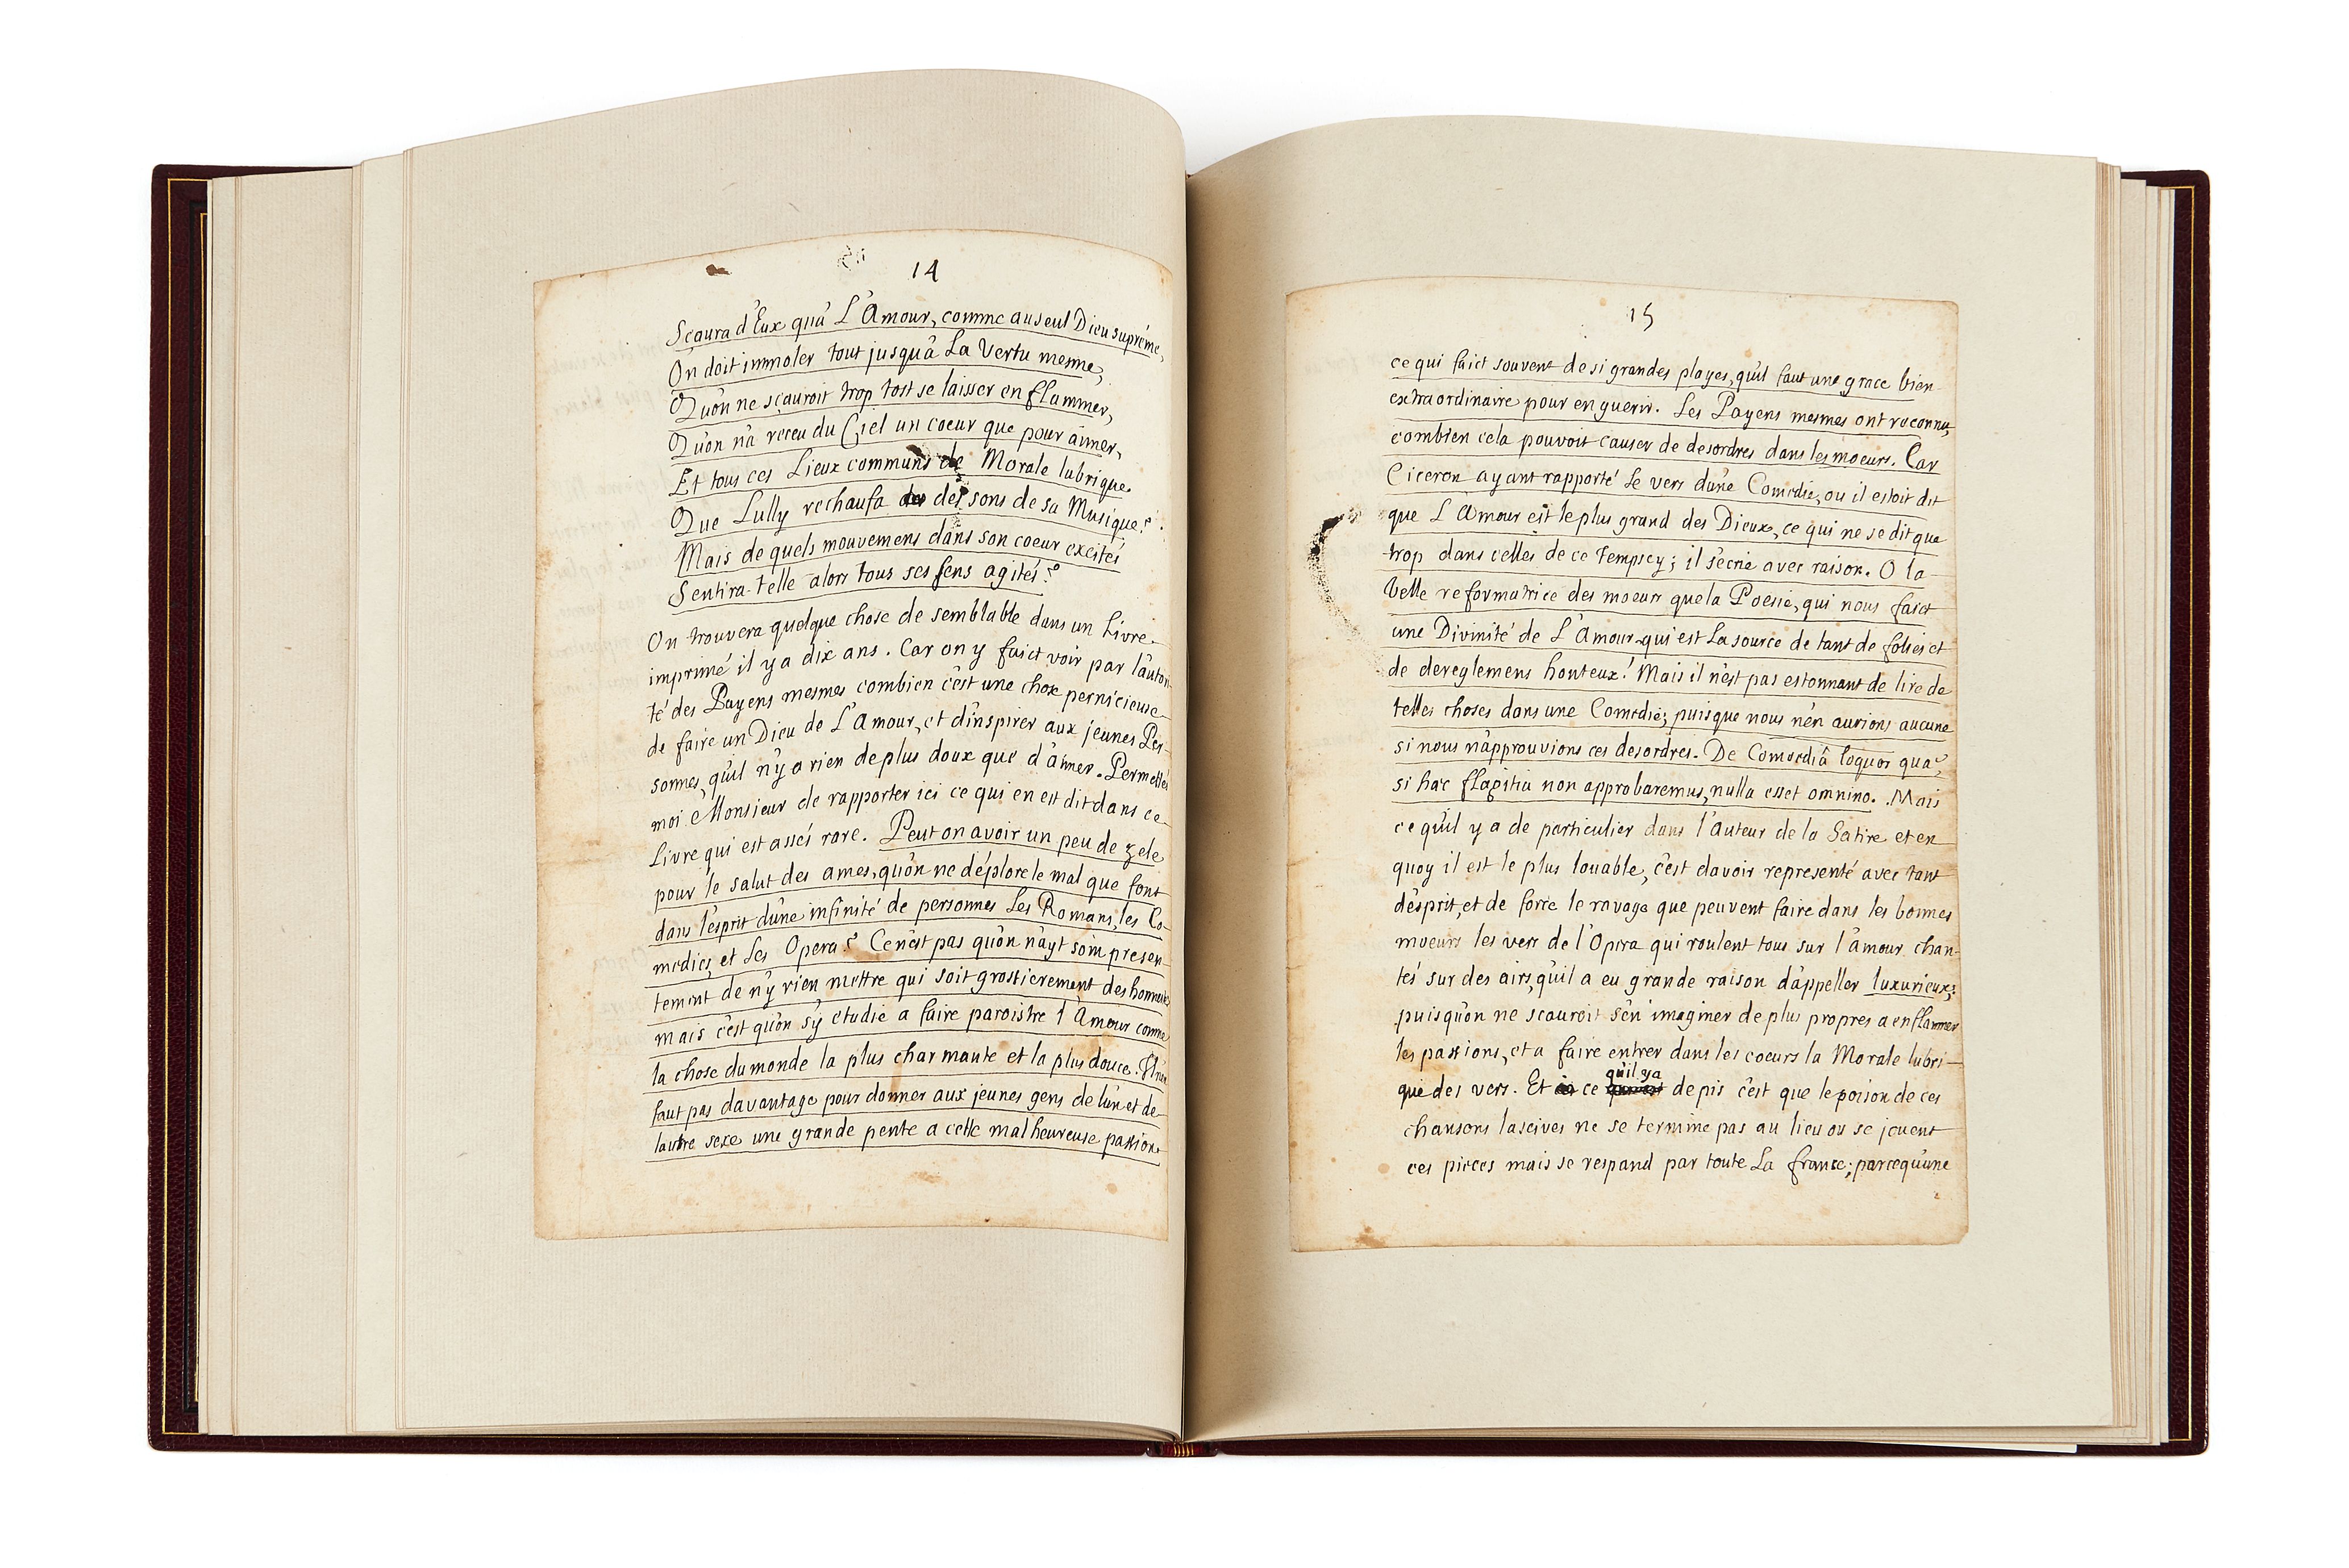 14
Sçaura d'Eux qu'à L'Amour, comme au seul Dieu suprème,
On doit immoler tout jusqu'à La Vertu mesme,
Qu'on ne sçauroit trop tost se laisser enflammer,
Qu'on n'a receu du Ciel un coeur que pour aimer,
Et tous ces Lieux communs de Morale lubrique
Que Lully rechaufa des sons de sa Musique?
Mais de quels mouvemens dans son coeur excités
Sentira-t'elle alors tous ses sens agités?
On trouvera quelque chose de semblable dans un Livre
imprimé il y a dix ans. Car on y faict voir par l'autori
té des Payens mesmes combien c'est une chose pernicieuse
de faire un Dieu de L'Amour, et d'inspirer aux jeunes Per-
sonnes, qu'il n'y a rien de plus doux que d'aimer. Permettés
moi Monsieur de rapporter ici ce qui en est dit dans ce
Livre qui est assés rare. Peut on avoir un peu de zele
pour le salut des ames, qu'on ne déplore le mal que font
dans l'esprit d'une infinité de personnes Les Romans, les Co-
medies, et Les Opera? Ce n'est pas qu'on n'ayt soin presen-
tement de n'y rien mettre qui soit grossierement deshonneste
mais c'est qu'on s'y etudie a faire paroistre l'Amour comme
la chose du monde la plus charmante et la plus douce. Il n'en
faut pas davantage pour donner aux jeunes gens de l'un et de
l'autre sexe une grande pente a cette malheureuse passion.
15
ce qui faict souvent de si grandes playes, qu'il faut une grace bien
extraordinaire pour en guerir. Les Payens mesmes ont reconnu,
combien cela pouvoit causer de desordres dans les moeurs. Car
Ciceron ayant rapporté Le vers d'une Comedie, ou il estoit dit
que L'Amour est le plus grand des Dieux, ce qui ne se dit que
trop dans celles de ce Temps cy; il s'ecrie avec raison. O la
belle reformatrice des moeurs que la Poesie, qui nous faict
une Divinité de L'Amour qui est La source de tant de folies et
de dereglemens honteux! Mais il n'est pas estonnant de lire de
telles choses dans une Comedie; puisque nous n'en aurions aucune
si nous n'approuvions ces desordres. De Comoediâ loquor quæ,
si hæc flagitia non approbaremus, nulla esset omnino. Mais
ce qu'il y a de particulier dans l'auteur de la Satire et en
quoy il est le plus louable, c'est d'avoir representé avec tant
d'esprit, et de force le ravage que peuvent faire dans les bonnes
moeurs les vers de l'Opera qui roulent tous sur l'amour chan-
tés sur des airs, qu'il a eu grande raison d'appeller luxurieux;
puisqu'on ne sçauroit s'en imaginer de plus propres a enflammer
les passions, et a faire entrer dans les coeurs la Morale lubri-
que des vers. Et ce qu'il y a de pis c'est que le poison de ces
chansons lascives ne se termine pas au lieu ou se jouent
ces pieces mais se respand par toute La france; parcequ'une